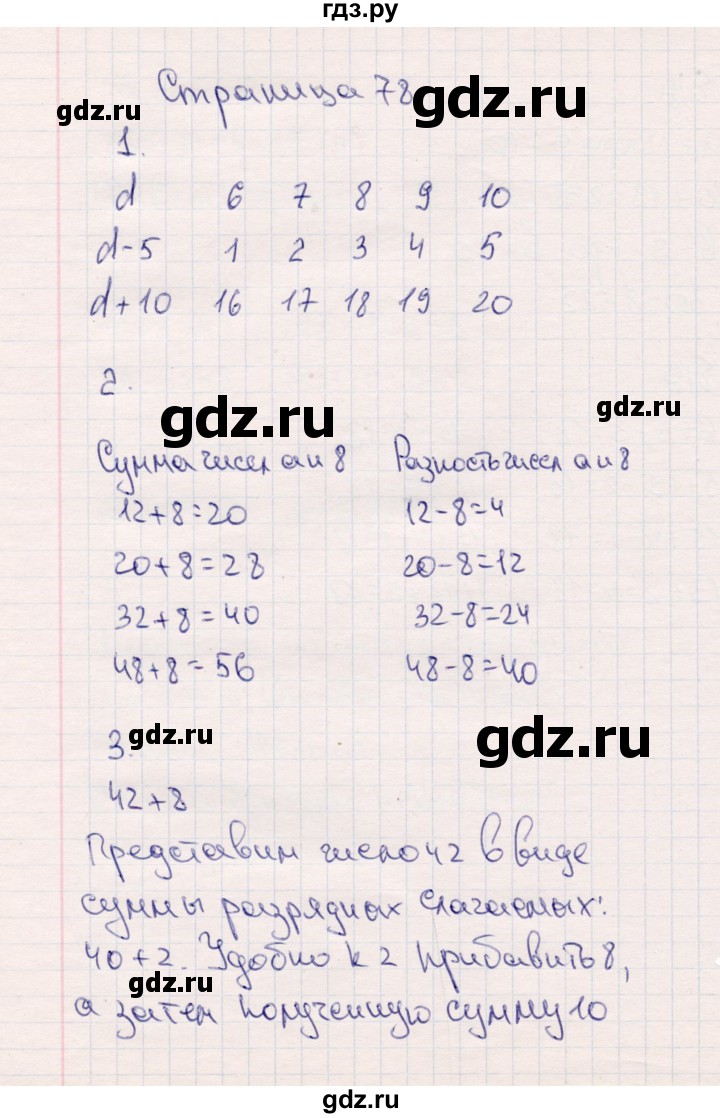 гдз.ру
Страница 78
gdz.ru
gdz.ru
1.
d 6 7 8 9 10
d-5 1 2 3 4 5
d+10 16 17 18 19 20
2.
gdz.ru
gdz.ru
Сумма чисел a и 8 Разность чисел a и 8
12+8=20 12-8=4
20+8=28 20-8=12
32+8=40 32-8=24
48+8=56 48-8=40
3.
gdz.ru
gdz.ru
42+8
Представим число 42 в виде
суммы разрядных слагаемых:
40+2. Удобно к 2 прибавить 8,
gdz.ru
а затем полученную сумму 10
gdz.ru
gdz.ru